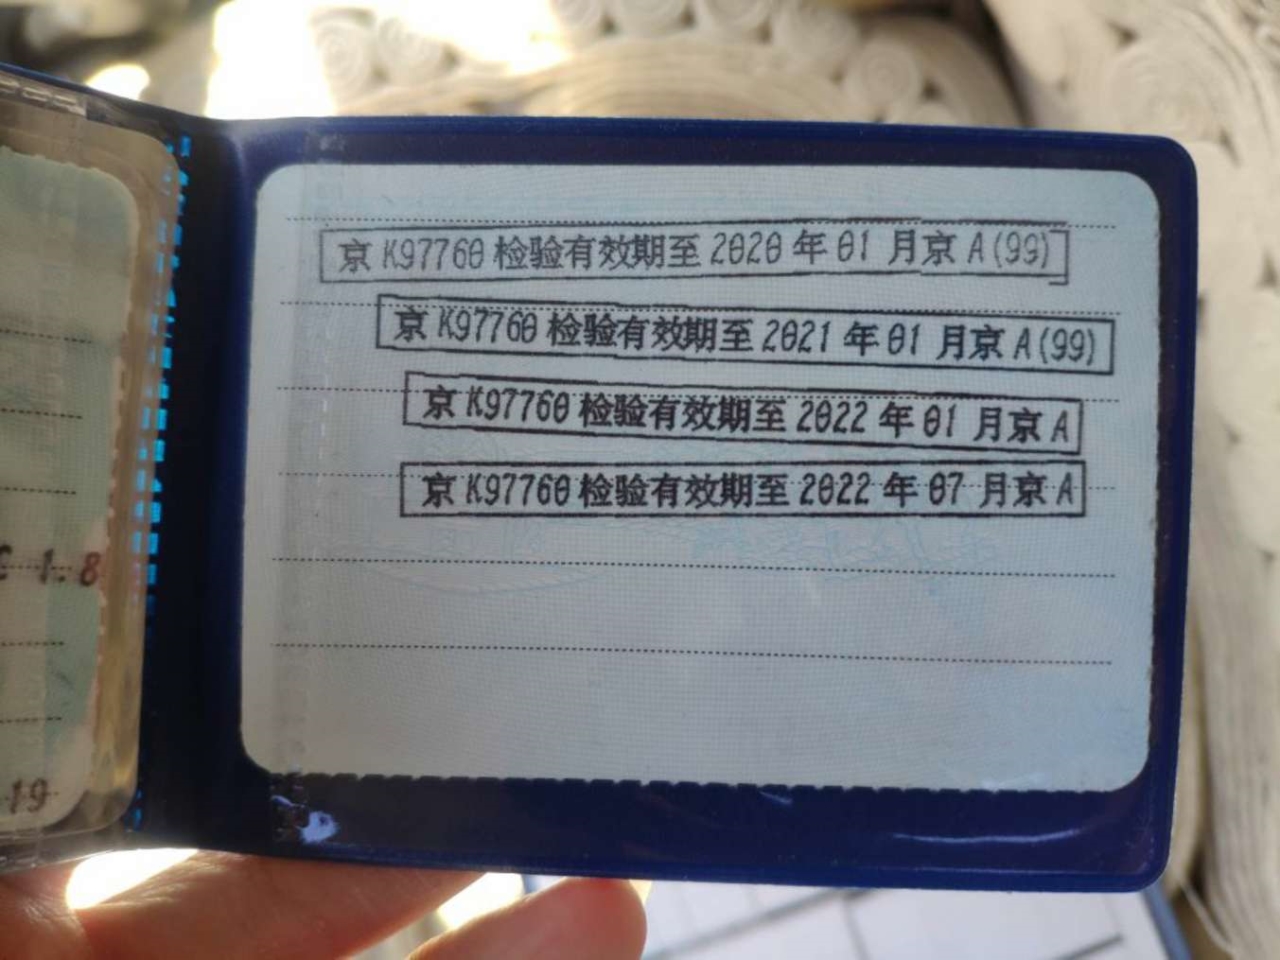 京K97760检验有效期至2020年01月京A(99)
京K97760检验有效期至2021年01月京A(99)
京K97760检验有效期至2022年01月京A
京K97760检验有效期至2022年07月京A
1.8
19